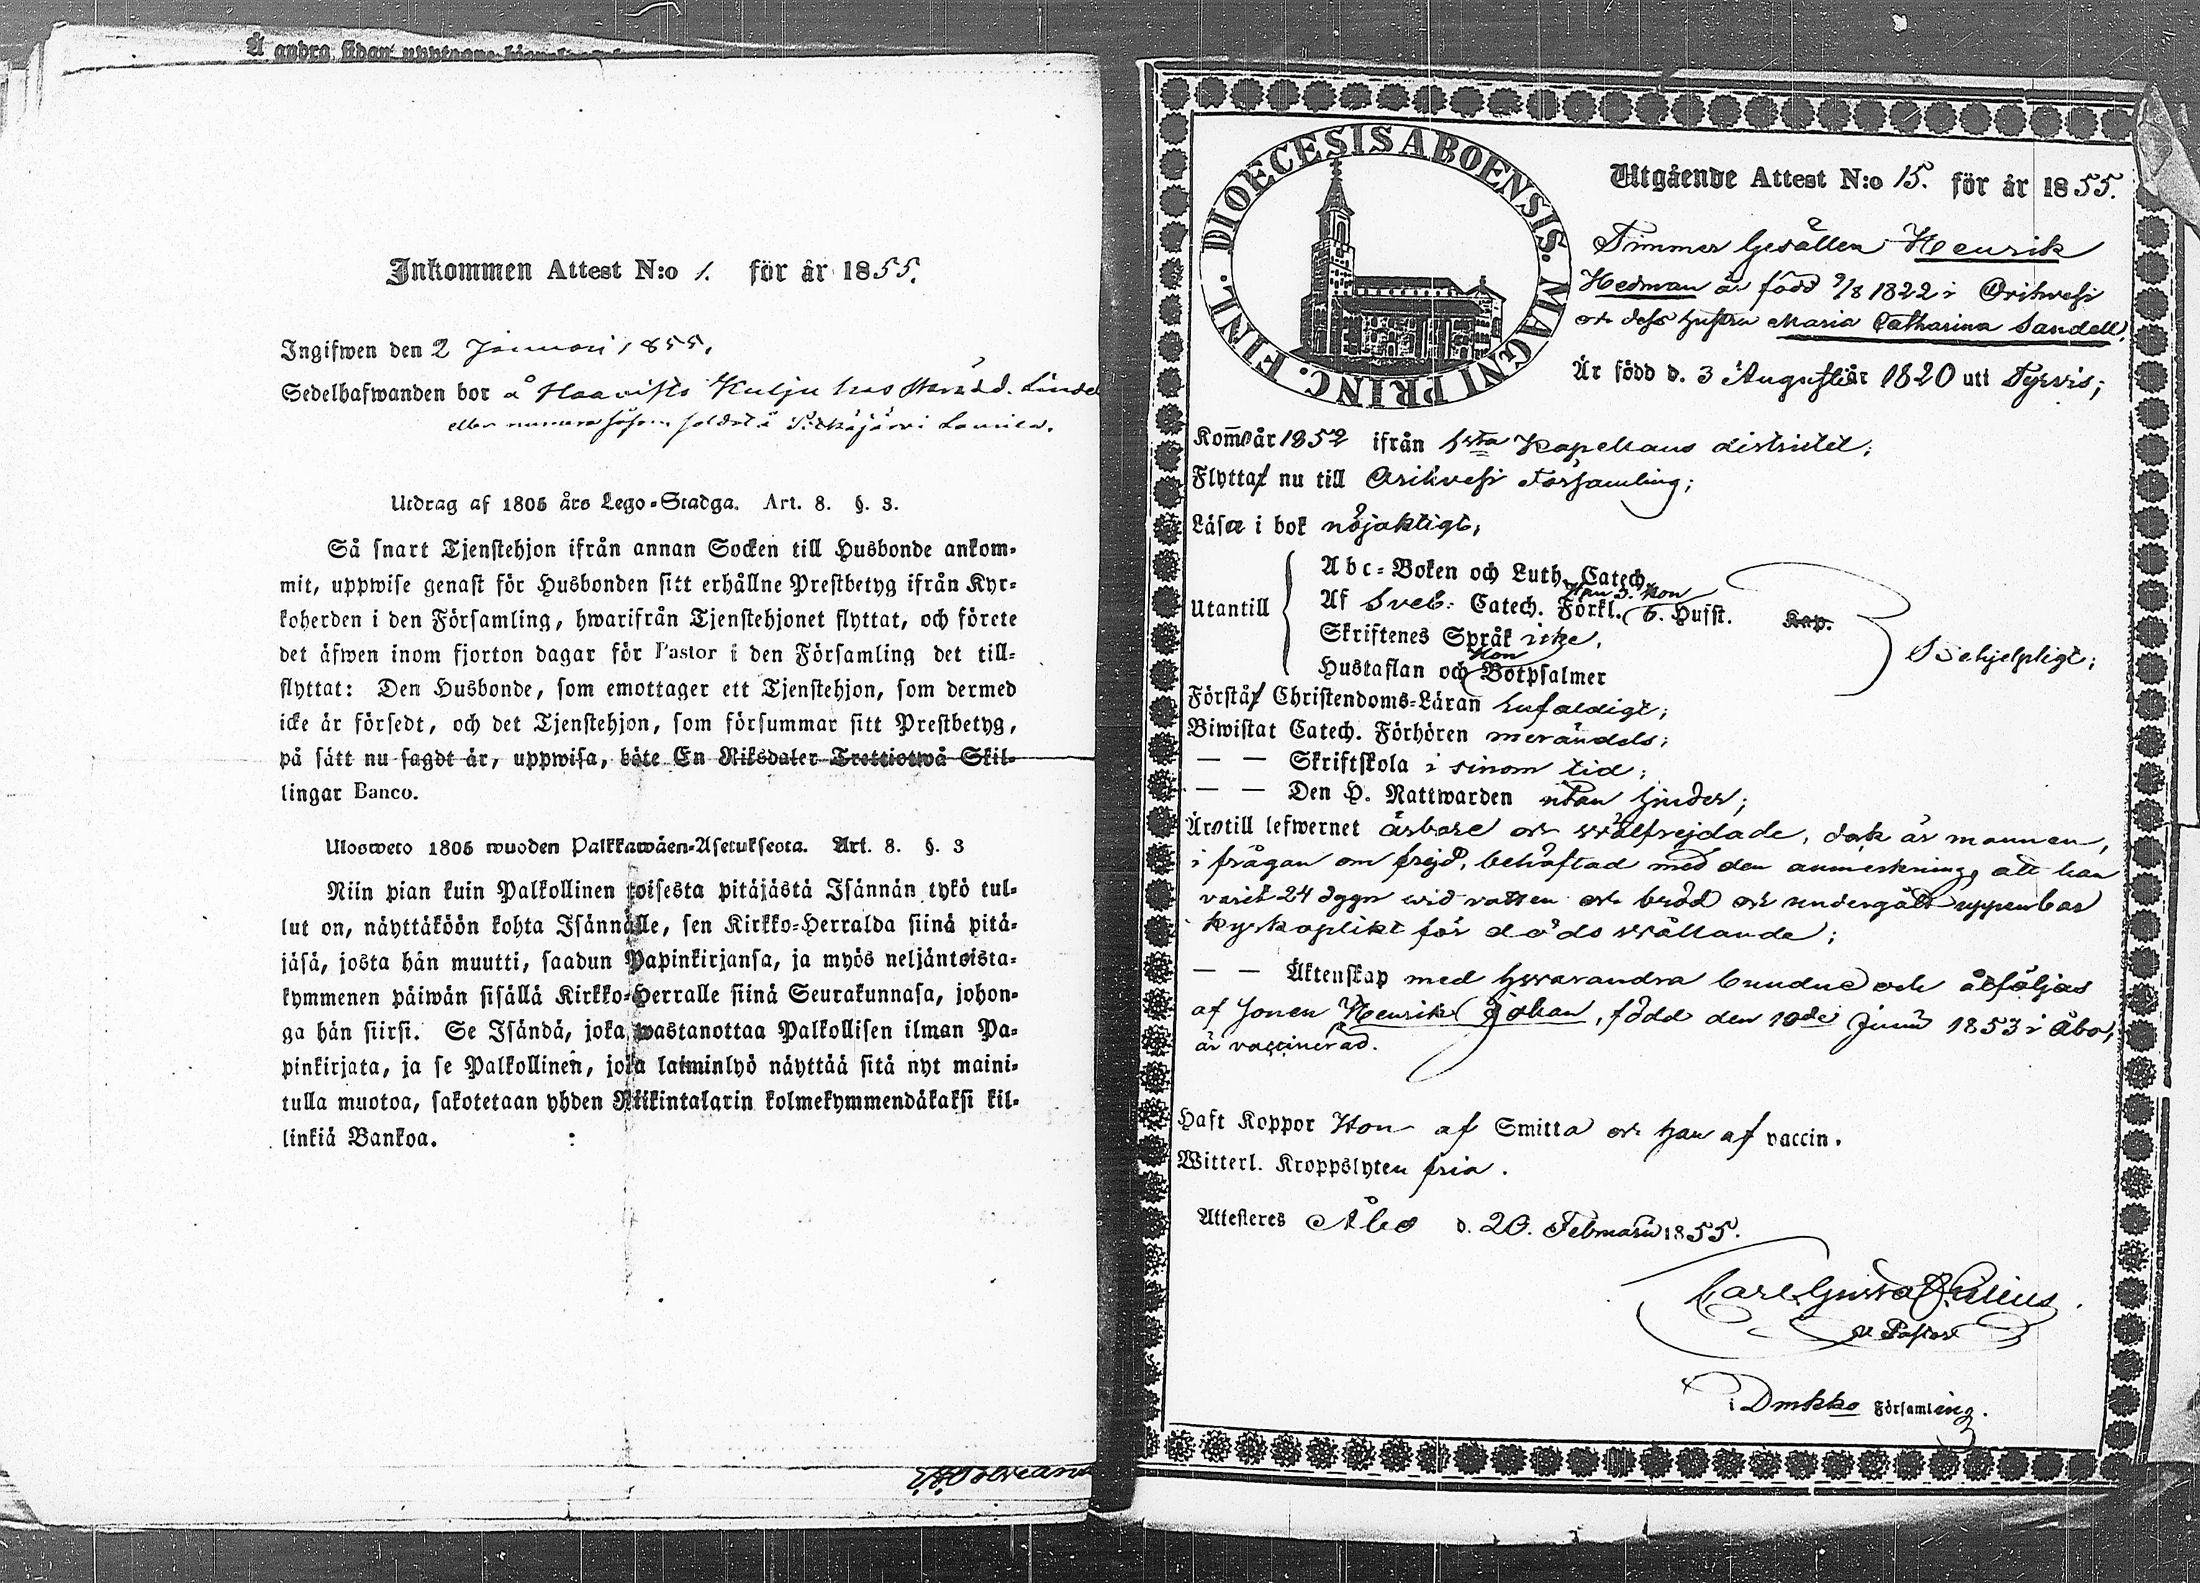 Å andra sidan upptagne
Inkommen Attest N:o 1. för år 1855.
Ingifwen den 2 Januari 1855.
Sedelhafwanden bor å Haavisto Kulju hos
eller numera
Utdrag af 1805 års Lego-Stadga. Art. 8. §. 3.
Så snart Tjenstehjon ifrån annan Socken till Husbonde ankom-
mit, uppwise genast för Husbonden sitt erhållne Prestbetyg ifrån Kyr-
koherden i den Församling, hwarifrån Tjenstehjonet flyttat, och förete
det äfwen inom fjorton dagar för Pastor i den Församling det till-
flyttat: Den Husbonde, som emottager ett Tjenstehjon, som dermed
icke är försedt, och det Tjenstehjon, som försummar sitt Prestbetyg,
på sätt nu sagdt är, uppwisa, böte En Riksdaler Trettiotwå Skil-
lingar Banco.
Ulosweto 1805 wuoden Palkkawäen-Asetuksesta. Art. 8. §. 3
Niin pian kuin Palkollinen toisesta pitäjästä Isännän tykö tul-
lut on, näyttäköön kohta Isännälle, sen Kirkko-Herralda siinä pitä-
jäsä, josta hän muutti, saadun Papinkirjansa, ja myös neljäntoista-
kymmenen päiwän sisällä Kirkko-Herralle siinä Seurakunnasa, johon-
ga hän siirsi. Se Isändä, joka wastanottaa Palkollisen ilman Pa-
pinkirjata, ja se Palkollinen, joka laiminlyö näyttää sitä nyt maini-
tulla muotoa, sakotetaan yhden Riikintalarin kolmekymmendäkaksi kil-
linkiä Bankoa.
DIOECESIS ABOENSIS. MAGNI PRINC. FINL.
Utgående Attest N:o 15. för år 1855.
Timmer Gesällen Henrik
Hedman är född 9/8 1822 i Orihvesi
och dess hustru Maria Catharina Sandell,
Är född d. 3 Augusti år 1820 uti Tyrvis;
Kommo år 1852 ifrån 1sta Kapellans districtet;
Flytta nu till Orihvesi Församling;
Läsa i bok nöjaktigt;
Utantill
Abc-Boken och Luth. Catech.
Af Sveb: Catech. Förkl. Han 3. Hon 6. Husst. Kap.
Skriftenes Språk icke.
Hustaflan och Hon Botpsalmer
Behjelpligt;
Förstå Christendoms-Läran enfaldigt;
Biwistat Catech. Förhören merändels;
— — Skriftskola i sinom tid;
— — Den H. Nattwarden utan hinder;
Äro till lefwernet ärbare och wälfrejdade, dock är mannen,
i frågan om frejd, behäftad med den anmerkning, att han
varit 24 dygn wid vatten och bröd och undergått uppenbar
kyrkoplikt för dödsvållande;
— — Äktenskap med hvarandra bundne och åtföljas
af sonen Henrik Johan, född den 10de Junii 1853 i Åbo,
är vaccinerad.
Haft Koppor Hon af Smitta och han af vaccin.
Witterl. Kroppslyten fria.
Attesteres Åbo d. 20. Februarii 1855.
Carl Gustaf
v. Pastor
i Dmkko Församling.